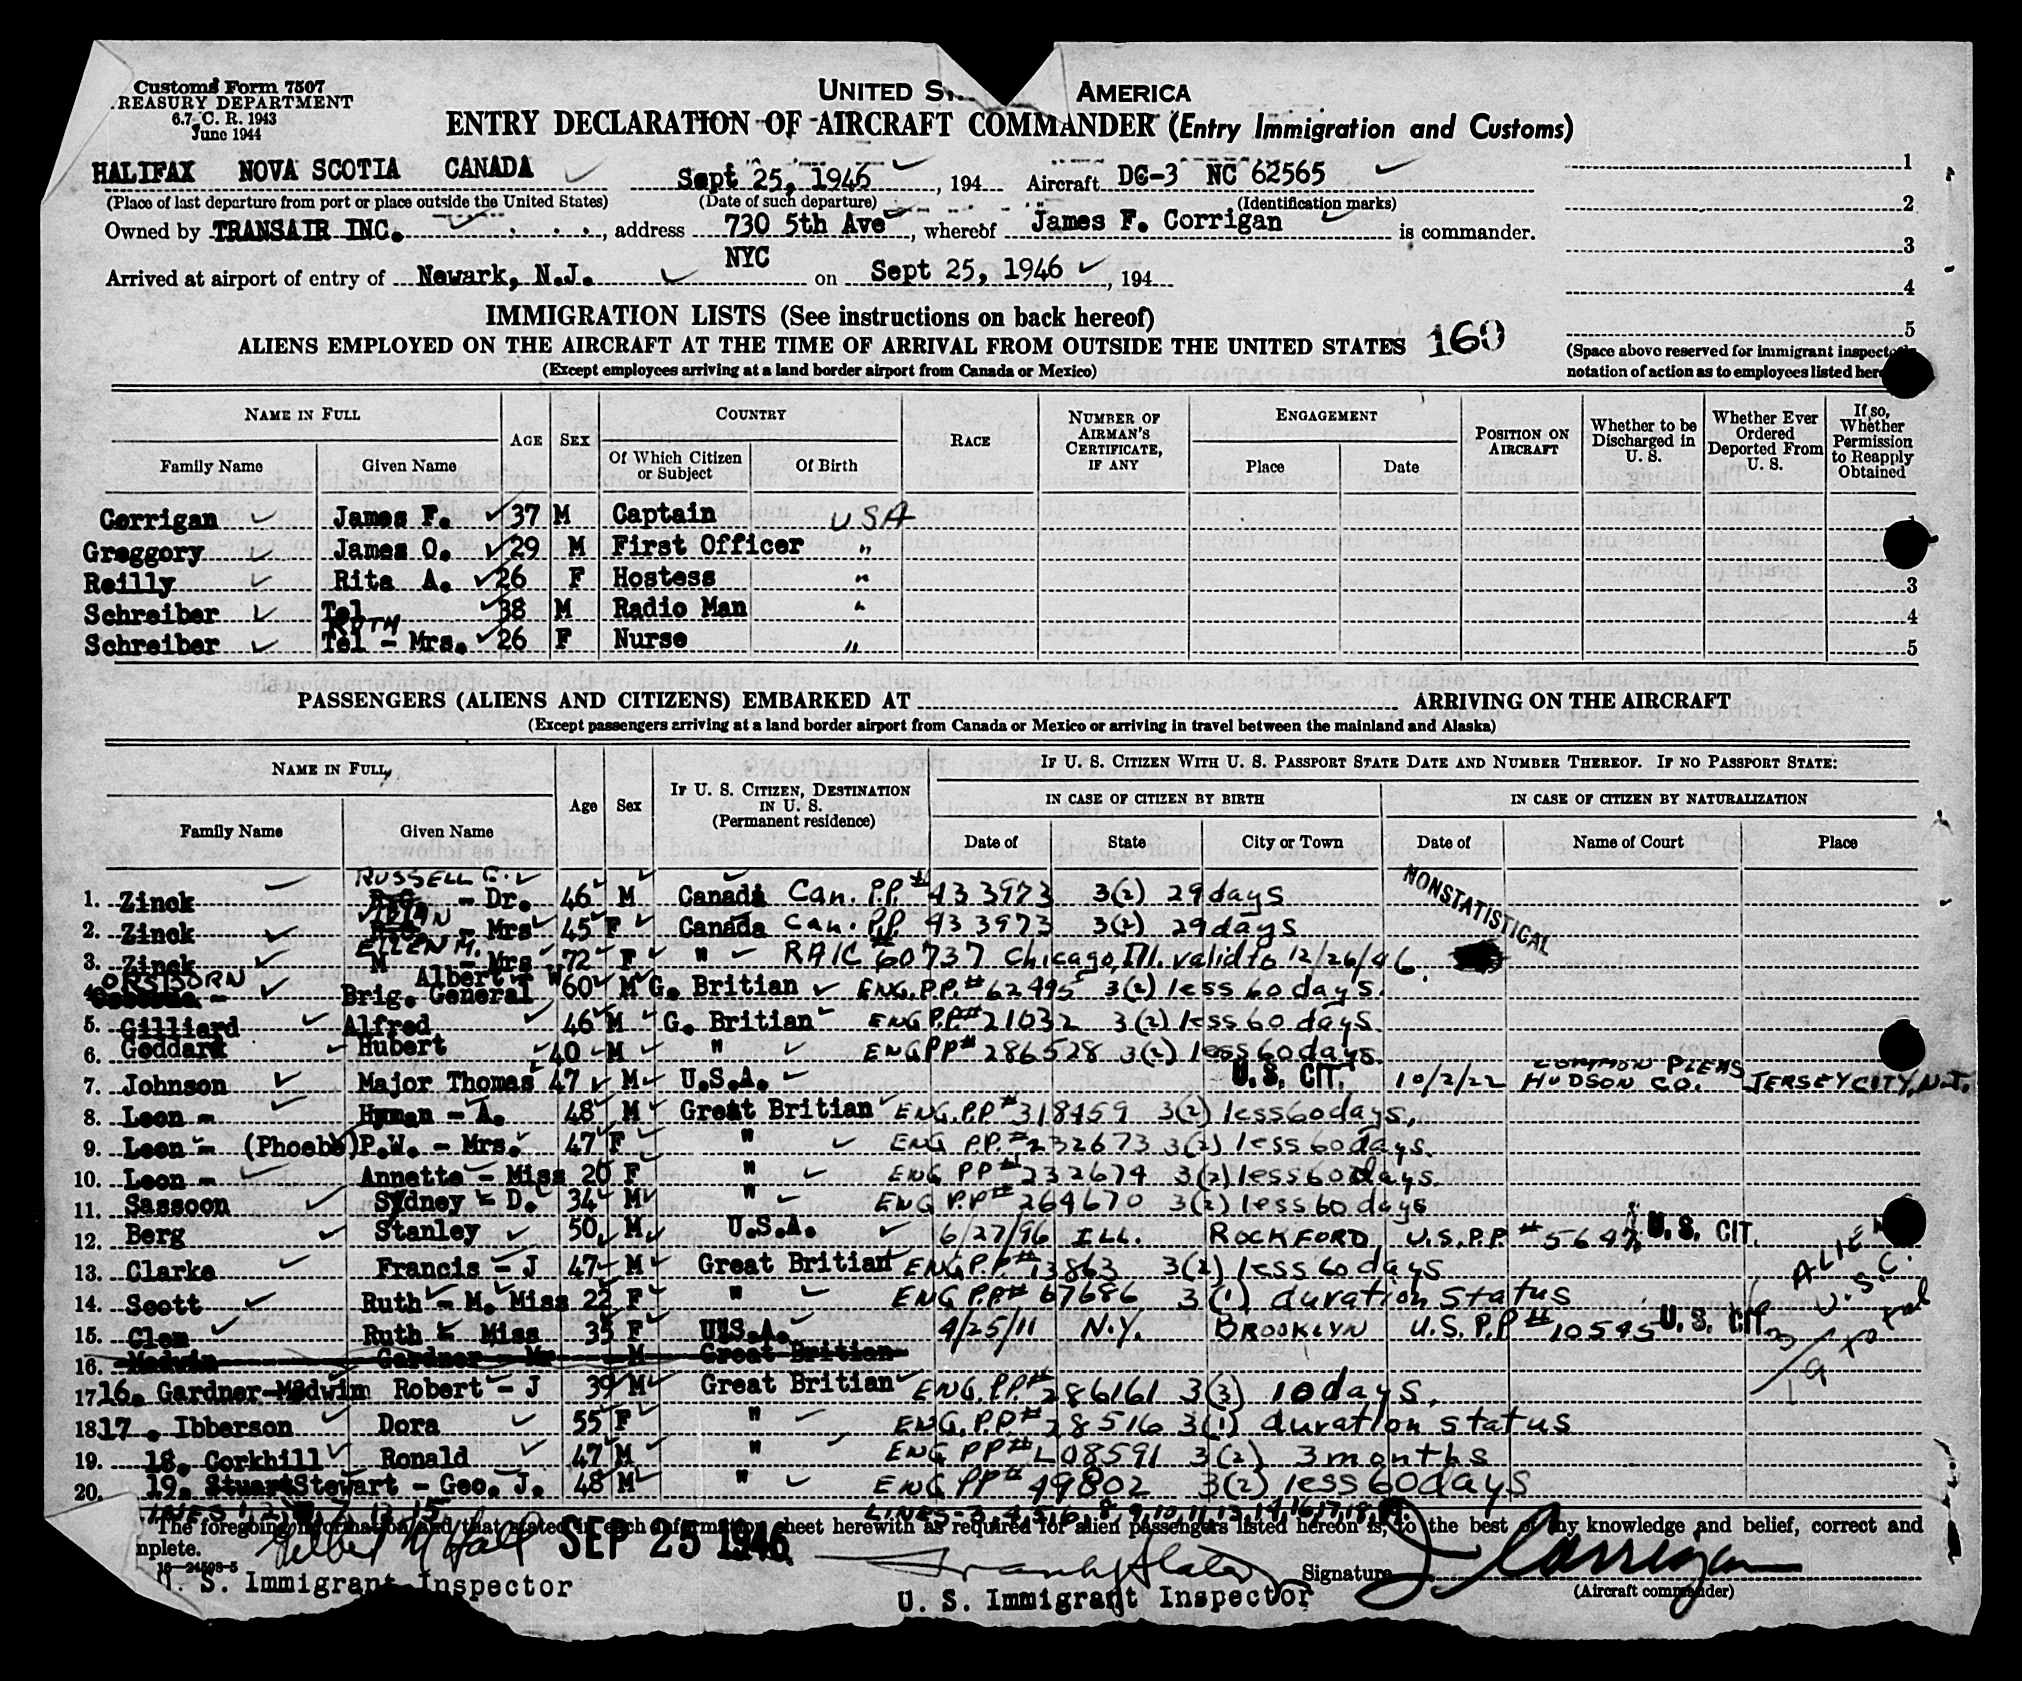 Customs Form 7507
REASURY DEPARTMENT
6.7 C. R. 1943
June 1944
UNITED S AMERICA
ENTRY DECLARATION OF AIRCRAFT COMMANDER (Entry Immigration and Customs)
HALIFAX NOVA SCOTIA CANADA Sept 25, 1946, 194 Aircraft DC-3 NC 62565
(Place of last departure from port or place outside the United States) (Date of such departure) (Identification marks)
Owned by TRANSAIR INC., address 730 5th Ave, whereof James F. Corrigan is commander.
NYC
Arrived at airport of entry of Newark, N.J. on Sept 25, 1946, 194
1
2
3
4
5
(Space above reserved for immigrant inspector's
notation of action as to employees listed here
IMMIGRATION LISTS (See instructions on back hereof)
ALIENS EMPLOYED ON THE AIRCRAFT AT THE TIME OF ARRIVAL FROM OUTSIDE THE UNITED STATES 160
(Except employees arriving at a land border airport from Canada or Mexico)
NAME IN FULL AGE SEX COUNTRY RACE NUMBER OF AIRMAN'S CERTIFICATE, IF ANY ENGAGEMENT POSITION ON AIRCRAFT Whether to be Discharged in U. S. Whether Ever Ordered Deported From U. S. If so, Whether Permission to Reapply Obtained
Family Name Given Name Of Which Citizen or Subject Of Birth Place Date
Corrigan James F. 37 M Captain USA
Greggory James O. 29 M First Officer "
Reilly Rita A. 26 F Hostess " 3
Schreiber Tel 38 M Radio Man " 4
RUTH
Schreiber Tel - Mrs. 26 F Nurse " 5
PASSENGERS (ALIENS AND CITIZENS) EMBARKED AT ARRIVING ON THE AIRCRAFT
(Except passengers arriving at a land border airport from Canada or Mexico or arriving in travel between the mainland and Alaska)
NAME IN FULL Age Sex IF U. S. CITIZEN, DESTINATION IN U. S. (Permanent residence) IF U. S. CITIZEN WITH U. S. PASSPORT STATE DATE AND NUMBER THEREOF. IF NO PASSPORT STATE:
IN CASE OF CITIZEN BY BIRTH IN CASE OF CITIZEN BY NATURALIZATION
Family Name Given Name Date of State City or Town Date of Name of Court Place
RUSSELL C.
1. Zinck - Dr. 46 M Canada Can. P.P.# 433973 3(2) 29 days NONSTATISTICAL
2. Zinck - Mrs 45 F Canada Can. P.P. 433973 3(2) 29 days
EILEEN M.
3. Zinck M - Mrs 72 F " RAIC #60737 Chicago, Ill. valid to 12/26/46.
ORSBORN Albert - W
4. Brig. General 60 M G. Britian ENG. P.P.# 62495 3(2) less 60 days.
5. Gilliard Alfred 46 M G. Britian ENG P.P.# 21032 3(2) less 60 days
6. Goddard Hubert 40 M " ENG PP# 286528 3(2) less 60 days.
7. Johnson Major Thomas 47 M U.S.A. U.S. CIT. 10/2/22 COMMON PLEAS HUDSON CO. JERSEY CITY, N.J.
8. Leon - Hyman - A. 48 M Great Britian ENG. P.P# 318459 3(2) less 60 days.
9. Leon - (Phoebe) P.W. - Mrs. 47 F " ENG P.P.# 232673 3(2) less 60 days.
10. Leon - Annette - Miss 20 F " ENG PP# 232674 3(2) less 60 days.
11. Sassoon Sydney - D. 34 M " ENG P.P# 264670 3(2) less 60 days
12. Berg Stanley 50 M U.S.A. 6/27/96 ILL. ROCKFORD U.S.P.P. # U.S. CIT.
13. Clarke Francis - J 47 M Great Britian ENG. P.P.# 13863 3(2) less 60 days
14. Scott Ruth - M. Miss 22 F " ENG P.P.# 67686 3(1) duration status
15. Clem Ruth - Miss 35 F U.S.A. 4/25/11 N.Y. BROOKLYN U.S.P.P# 10545 U.S. CIT.
16. Medwin Gardner - Mr M Great Britian
17 16. Gardner-Medwin Robert - J 39 M Great Britian ENG. P.P.# 286161 3(3) 10 days.
18 17. Ibberson Dora 55 F " ENG. P.P.# 28516 3(1) duration status
19. 18. Corkhill Ronald 47 M " ENG PP# L08591 3(2) 3 months
20. 19. Stuart Stewart - Geo. J. 48 M " ENG PP# 49802 3(2) less 60 days
ALIEN
U.S.C.
total
LINES - 3, 4, 5, 6, 8, 9, 10, 11, 13, 14, 16, 17, 18, 19.
The foregoing information and that stated in each information sheet herewith as required for alien passengers listed hereon is, to the best of my knowledge and belief, correct and
mplete.
16-24593-5
SEP 25 1946
U. S. Immigrant Inspector
U. S. Immigrant Inspector
Signature J Corrigan
(Aircraft commander)